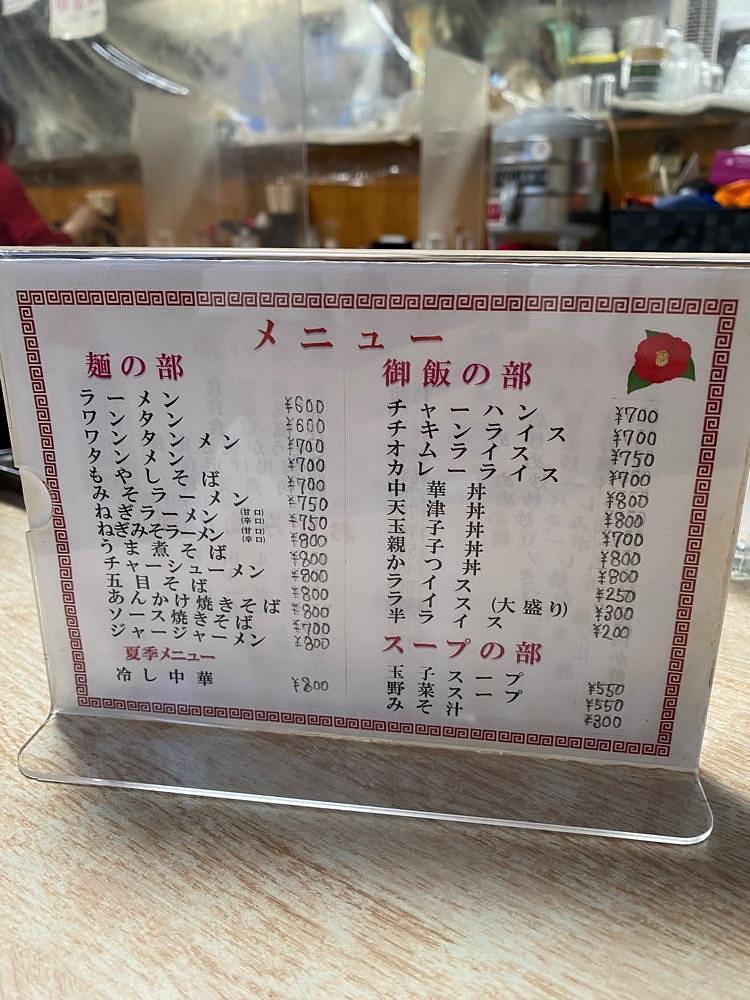 メニュー
麺の部
ラーメン ¥600
ワンタン ¥600
ワンタンメン ¥700
タンメン ¥700
もやしそば ¥700
みそラーメン ¥750
ねぎラーメン (甘口 辛口) ¥750
ねぎみそラーメン (甘口 辛口) ¥800
うま煮そば ¥800
チャーシューメン ¥800
五目そば ¥800
あんかけ焼きそば ¥800
ソース焼きそば ¥700
ジャージャーメン ¥800
夏季メニュー
冷し中華 ¥800
御飯の部
チャーハン ¥700
チキンライス ¥700
オムライス ¥750
カレーライス ¥700
中華丼 ¥800
天津丼 ¥800
玉子丼 ¥700
親子丼 ¥800
かつ丼 ¥800
ライス ¥250
ライス(大盛り) ¥300
半ライス ¥200
スープの部
玉子スープ ¥550
野菜スープ ¥550
みそ汁 ¥300